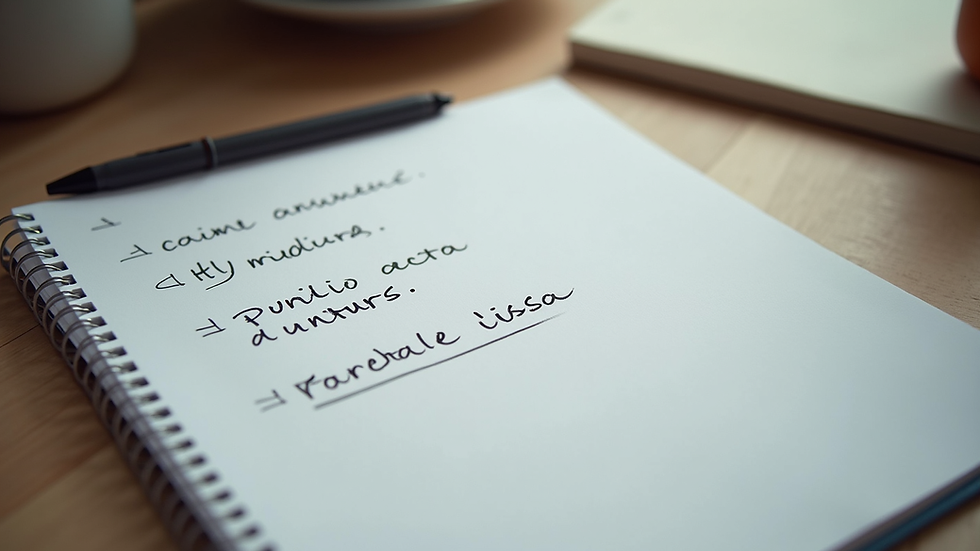 caime anumenè.
Hy miediurs.
Punilio acta
dunturs.
rarchale iissa